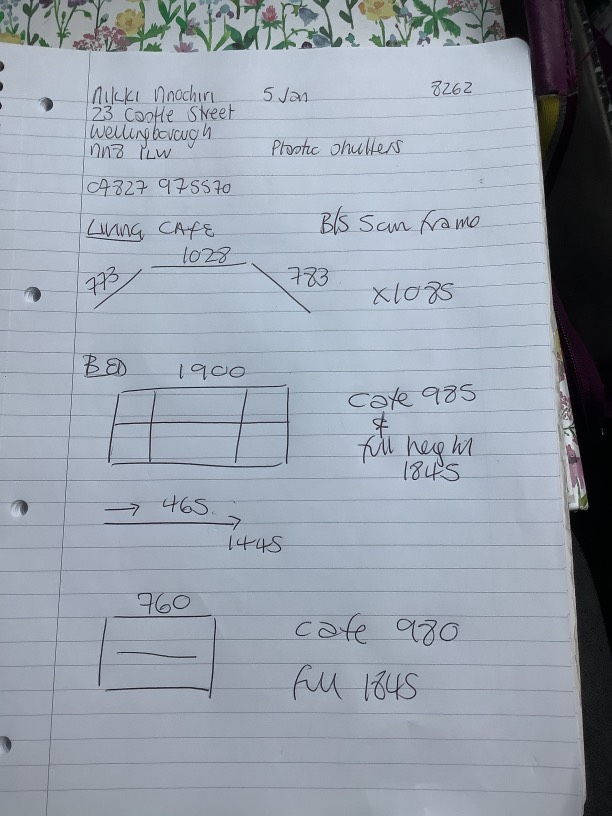 Nikki Nnochiri 5 Jan 8262
23 Castle Street
Wellingborough
NN8 1LW Plastic shutters
07827 975570
Living CAFE B/S 5cm frame
1028
773 783 x1085
BED 1900
cafe 985
&
full height
1845
→ 465
1445
760
cafe 980
full 1845